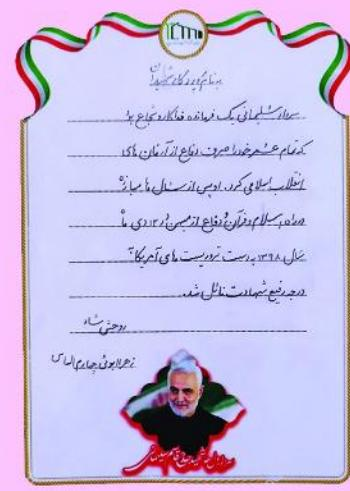 بنام پروردگار شهیدان
سردار سلیمانی یک فرمانده فداکار و شجاع بود
که تمام عمر خود را صرف دفاع از آرمان های
انقلاب اسلامی کرد. او پس از سال ها مبارزه
در راه اسلام و قرآن و دفاع از میهن در ۱۳ دی ماه
سال ۱۳۹۸ به دست تروریست های آمریکا به
درجه رفیع شهادت نائل شد.
روحش شاد
چهارم الماس